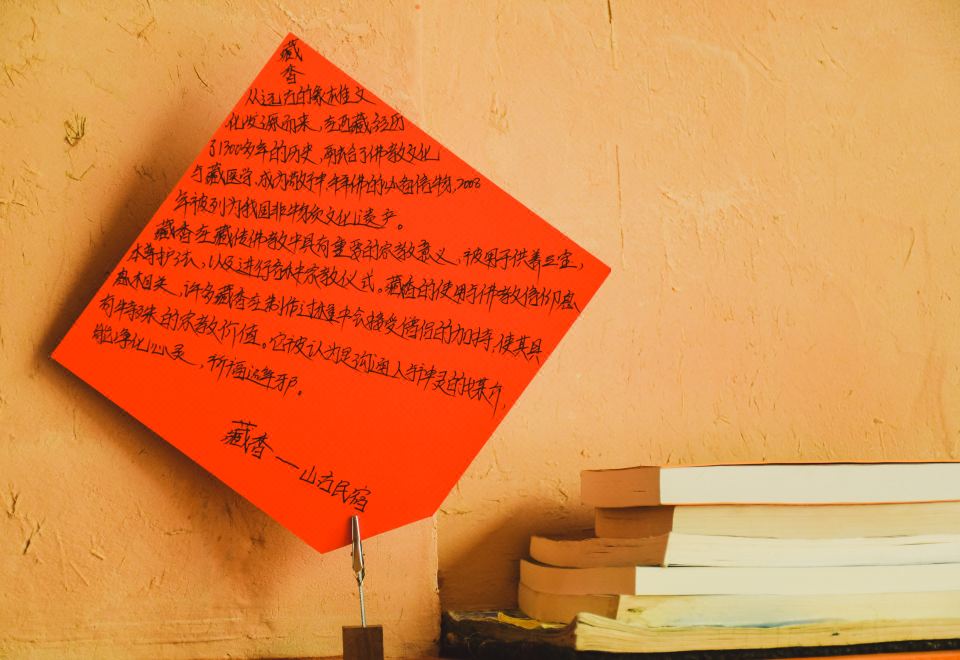 藏
香
从远方的象雄文
化发源而来,在西藏经历
了1300多年的历史,融合了佛教文化
与藏医学,成为敬神 拜佛的必备信物,2008
年被列为我国非物质文化遗产。
藏香在藏传佛教中具有重要的宗教意义,被用于供养三宝,
本尊护法,以及进行各种宗教仪式。藏香的使用与佛教信仰息
息相关,许多藏香在制作过程中会接受僧侣的加持,使其具
有特殊的宗教价值。它被认为是沟通人与神灵的媒介,
能净化心灵,祈福辟邪。
藏香一山方民宿